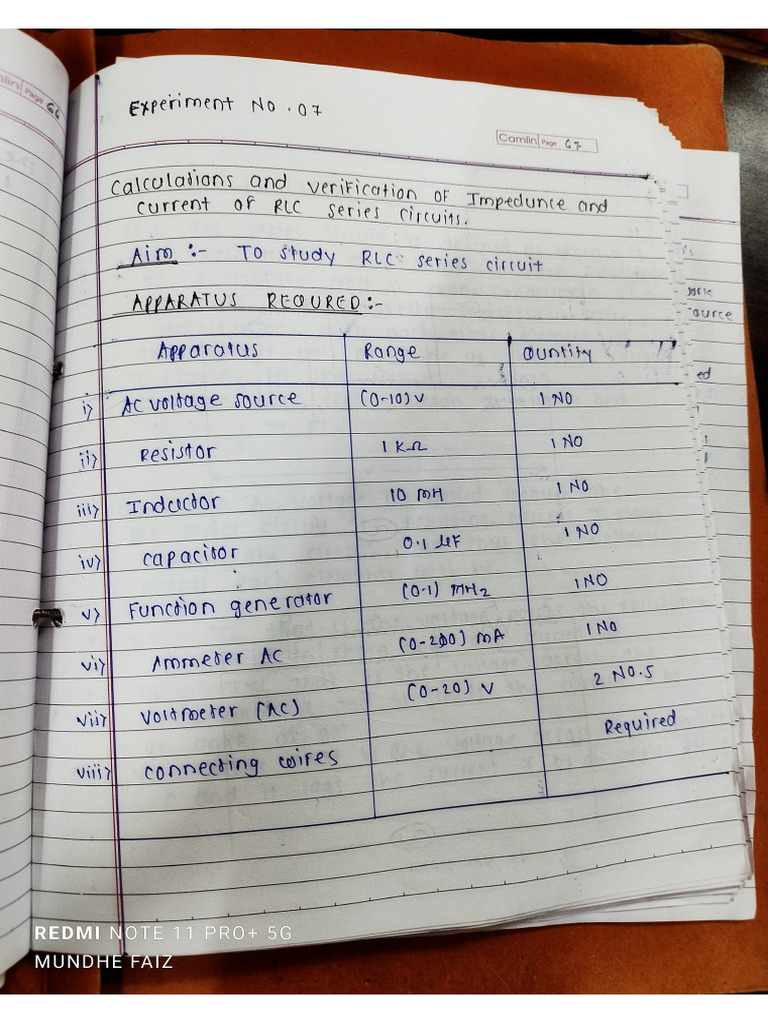 Camlin Page 67
Page 66
Experiment No. 07
Calculations and verification of Impedunce and
current of RLC series circuits.
Aim :- To study RLC series circuit
APPARATUS REQURED:-
Apparatus Range Quntity
i) AC voltage source (0-10) V 1 NO
ii) Resistor 1 KΩ 1 NO
iii) Inductor 10 mH 1 NO
iv) capacitor 0.1 μF 1 NO
v) Function generator (0-1) MHz 1 NO
vi) Ammeter AC (0-200) mA 1 NO
vii) voltmeter (AC) (0-20) V 2 NO.S
viii) connecting wires Required
ource
ed
REDMI NOTE 11 PRO+ 5G
MUNDHE FAIZ